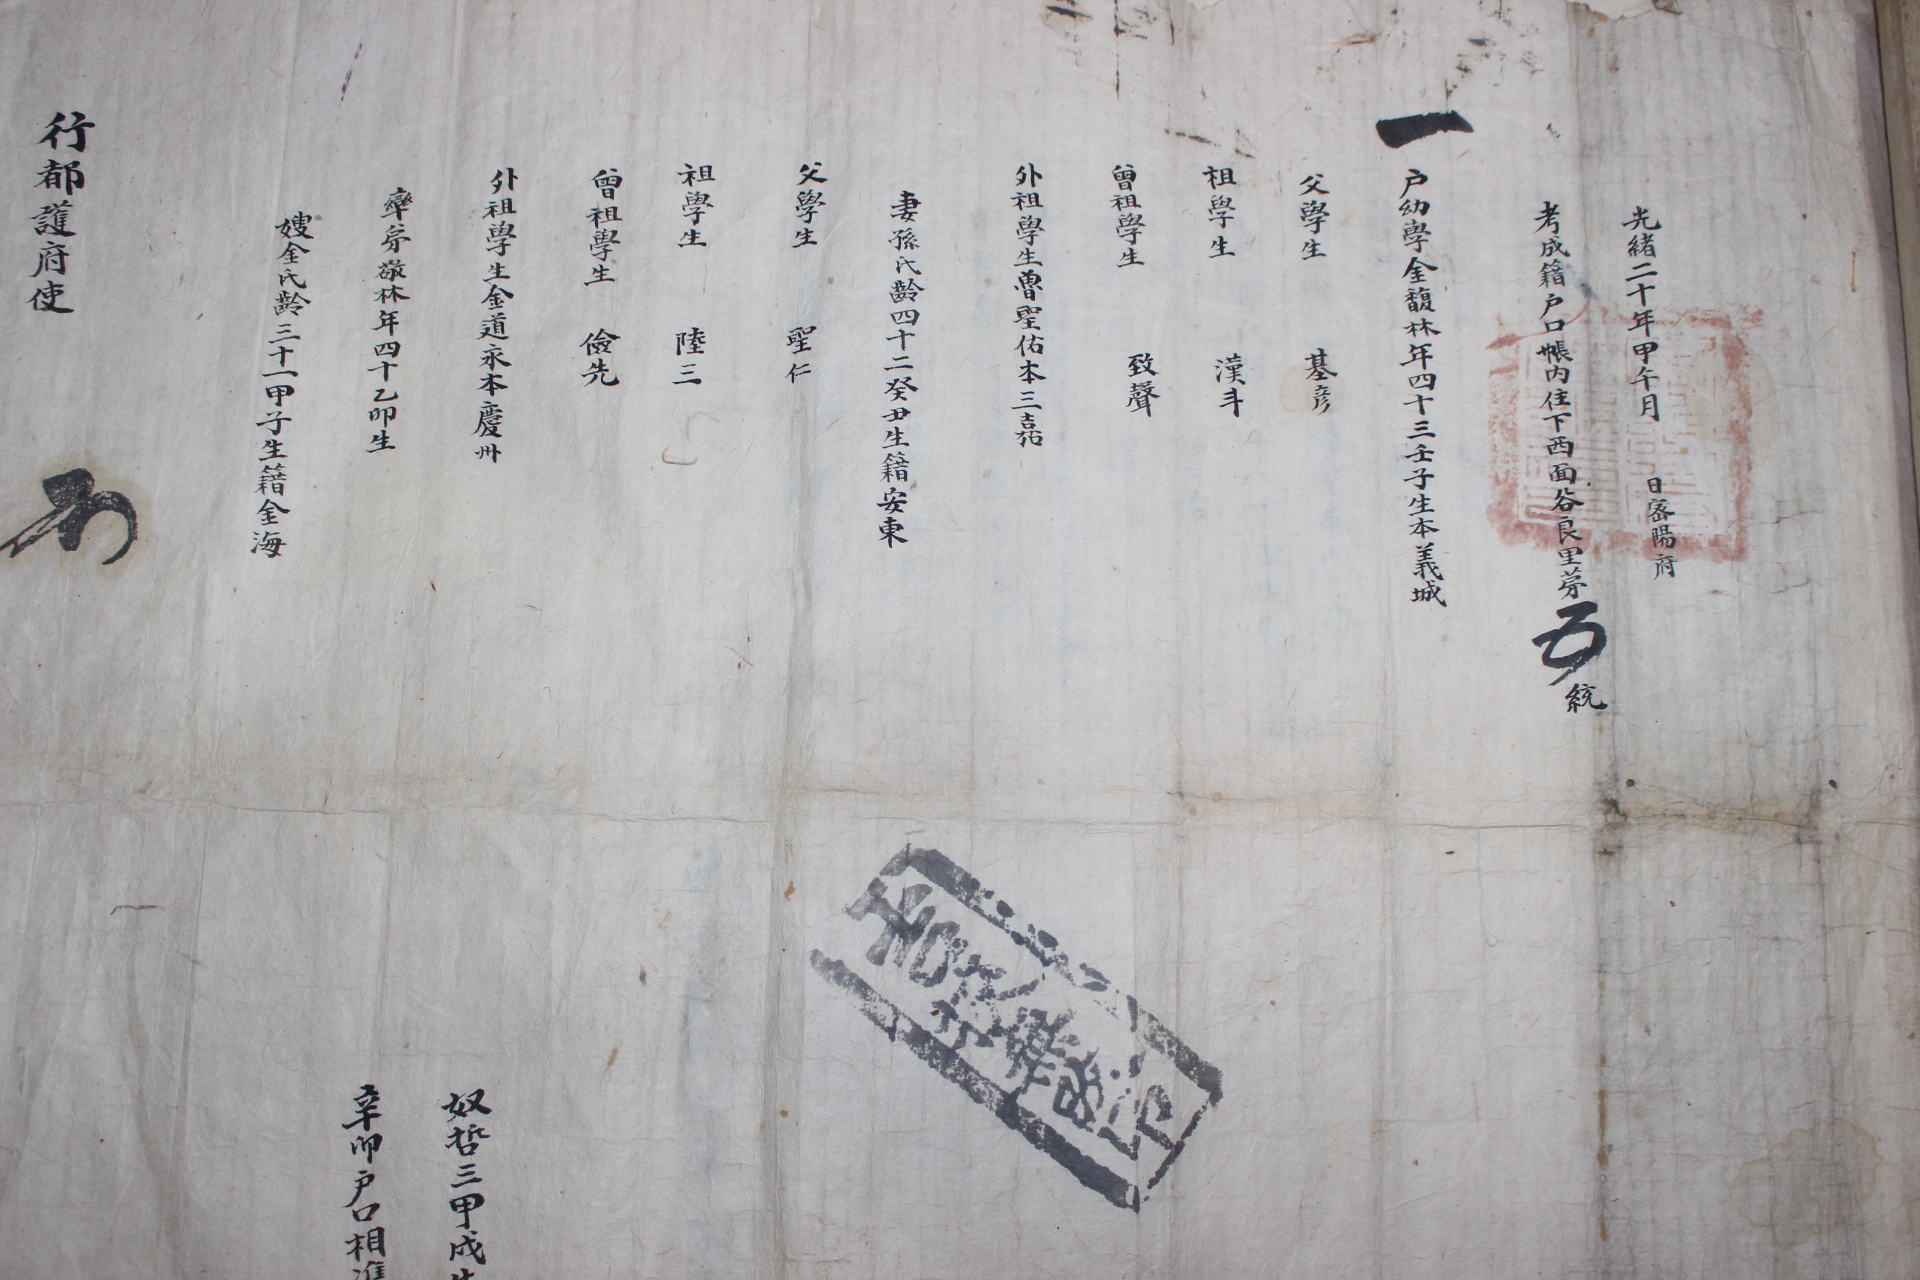 光緖二十年甲午月 日密陽府
考成籍戶口帳內住下西面谷良里第五統
一
戶幼學金馥林年四十三壬子生本義城
父學生 基彦
祖學生 漢斗
曾祖學生 致聲
外祖學生曺聖佑本三嘉
妻孫氏齡四十二癸丑生籍安東
父學生 聖仁
祖學生 陸三
曾祖學生 儉先
外祖學生金道永本慶州
率弟敬林年四十乙卯生
嫂金氏齡三十一甲子生籍金海
奴哲三甲戌生
辛卯戶口相準
行都護府使